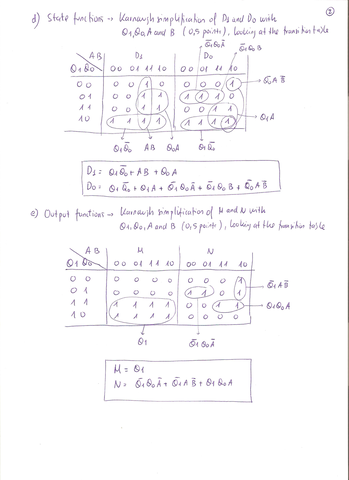 2
d) State functions → Karnaugh simplification of D1 and D0 with
Q1,Q0,A and B (0,5 points), looking at the transition table
Q̄1Q0Ā
AB D1 D0 Q̄1Q0B
Q1 Q0 00 01 11 10 00 01 11 10
00 0 0 1 0 0 0 0 1 Q̄0AB̄
01 0 0 1 1 1 1 1 0
11 0 0 1 1 0 0 1 1
10 1 1 1 1 1 1 1 1 Q1A
Q1Q̄0 AB Q0A Q1Q̄0
D1 = Q1Q̄0 + AB + Q0A
D0 = Q1Q̄0 + Q1A + Q̄1Q0Ā + Q̄1Q0B + Q̄0AB̄
e) Output functions → Karnaugh simplification of M and N with
Q1,Q0,A and B (0,5 points), looking at the transition table
AB M N
Q1 Q0 00 01 11 10 00 01 11 10
00 0 0 0 0 0 0 0 1
01 0 0 0 0 1 1 0 1 Q̄1AB̄
11 1 1 1 1 0 0 1 1 Q1Q0A
10 1 1 1 1 0 0 0 0
Q1 Q̄1Q0Ā
M = Q1
N = Q̄1Q0Ā + Q̄1AB̄ + Q1Q0A